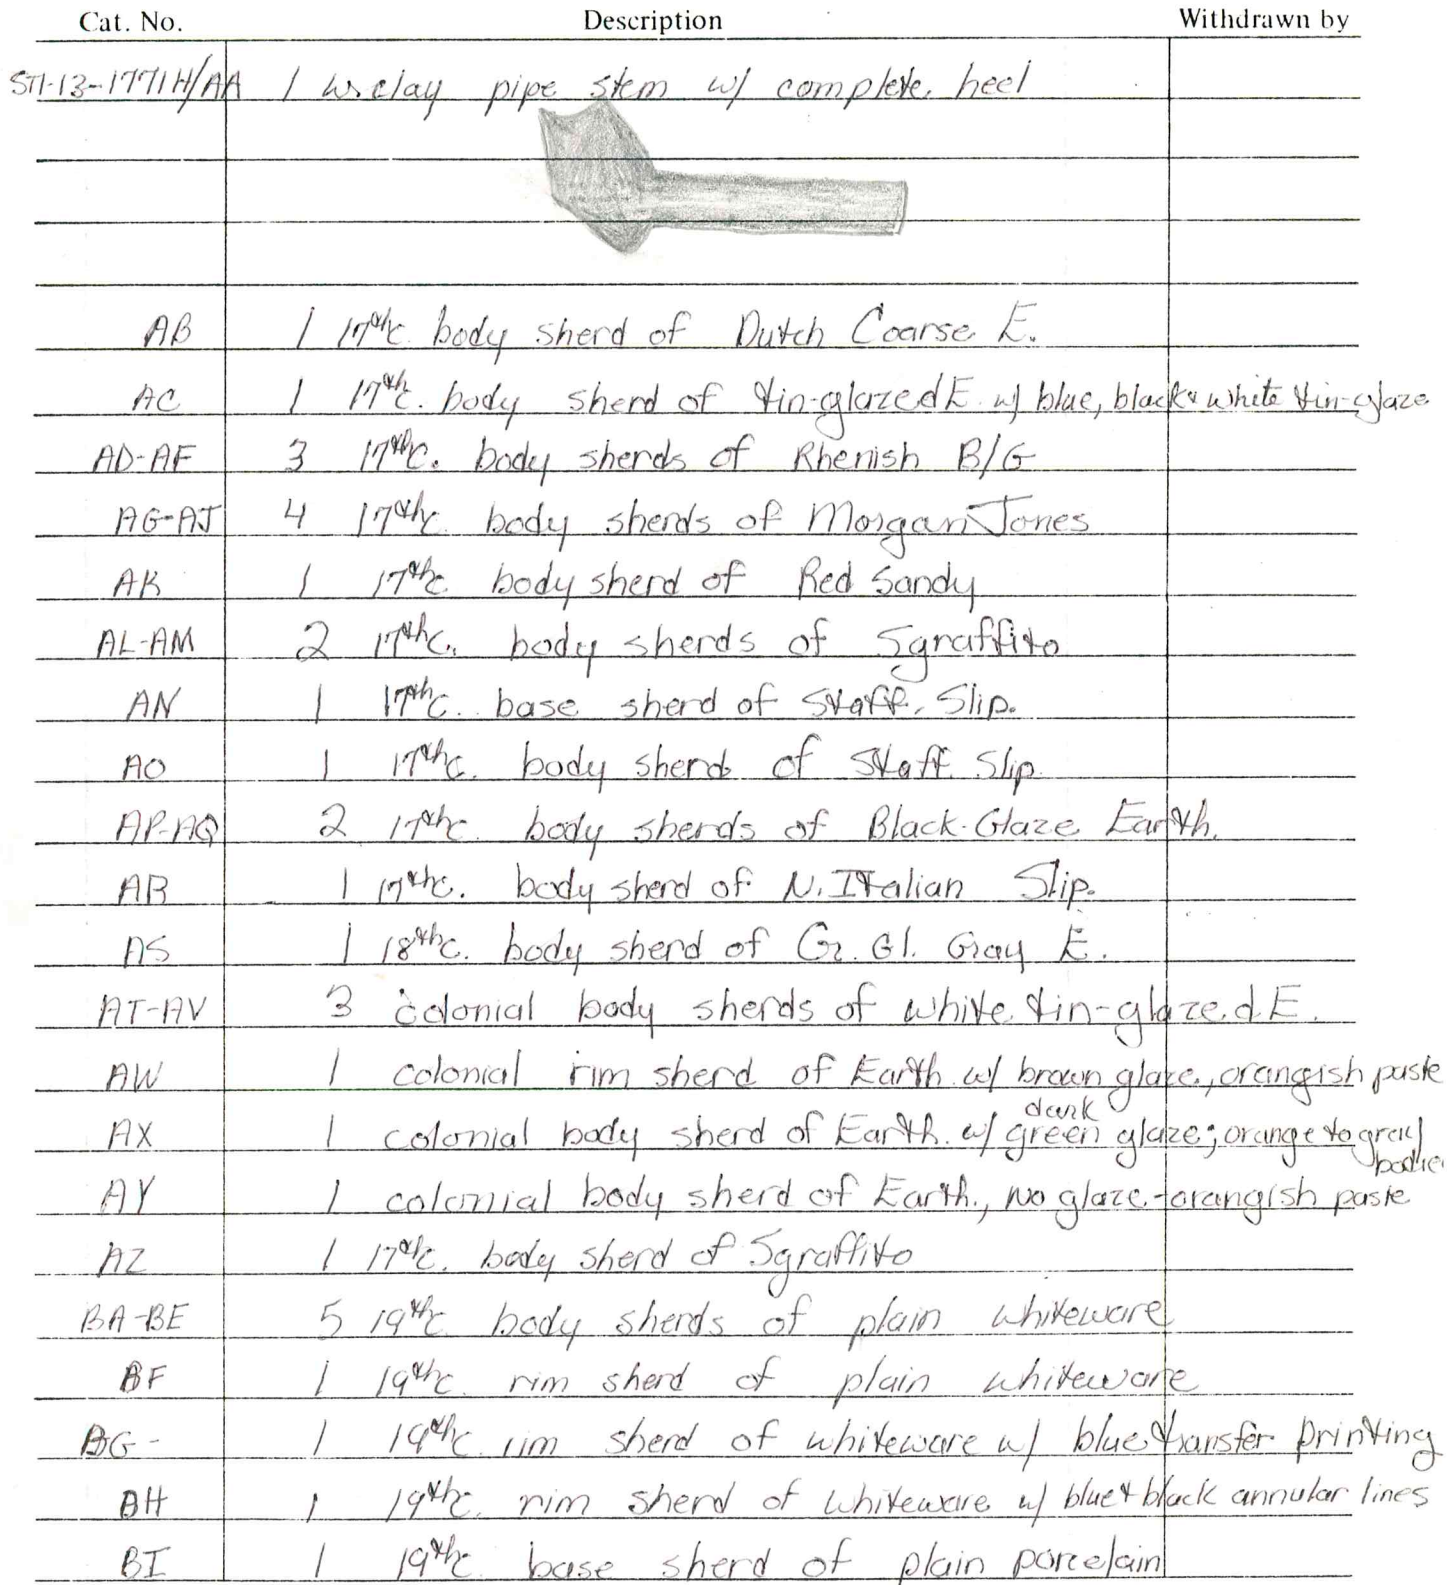 Cat. No. Description Withdrawn by
ST1-13-1771H/AA 1 w. clay pipe stem w/ complete heel
AB 1 17th c. body sherd of Dutch Coarse E.
AC 1 17th c. body sherd of tin-glazed E. w/ blue, black & white tin-glaze
AD-AF 3 17th c. body sherds of Rhenish B/G
AG-AJ 4 17th c. body sherds of Morgan Jones
AK 1 17th c. body sherd of Red Sandy
AL-AM 2 17th c. body sherds of Sgraffito
AN 1 17th c. base sherd of Staff. Slip.
AO 1 17th c. body sherd of Staff. Slip.
AP-AQ 2 17th c. body sherds of Black-Glaze Earth.
AR 1 17th c. body sherd of N. Italian Slip.
AS 1 18th c. body sherd of Gr. Gl. Gray E.
AT-AV 3 colonial body sherds of white tin-glazed E.
AW 1 colonial rim sherd of Earth. w/ brown glaze, orangish paste
AX 1 colonial body sherd of Earth. w/ dark green glaze; orange to gray bodie
AY 1 colonial body sherd of Earth., no glaze-orangish paste
AZ 1 17th c. body sherd of Sgraffito
BA-BE 5 19th c. body sherds of plain whiteware
BF 1 19th c. rim sherd of plain whiteware
BG- 1 19th c. rim sherd of whiteware w/ blue transfer printing
BH 1 19th c. rim sherd of whiteware w/ blue & black annular lines
BI 1 19th c. base sherd of plain porcelain